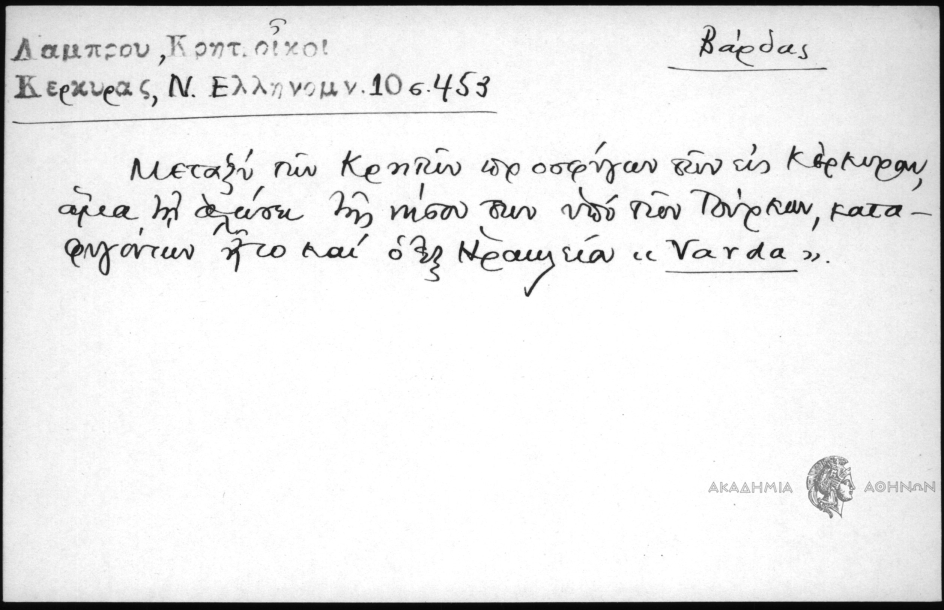 Βάρδας
Λαμπρου, Κρητ. οἶκοι
Κερκυρας, Ν. Ελληνομν. 10 σ. 453
Μεταξύ τῶν Κρητῶν προσφύγων τῶν εἰς Κέρκυραν,
ἅμα τῇ ἁλώσει τῆς νήσου των ὑπό τῶν Τούρκων, κατα-
φυγόντων ἦτο καί ὁ ἐξ «Varda».
ΑΚΑΔΗΜΙΑ ΑΘΗΝΩΝ